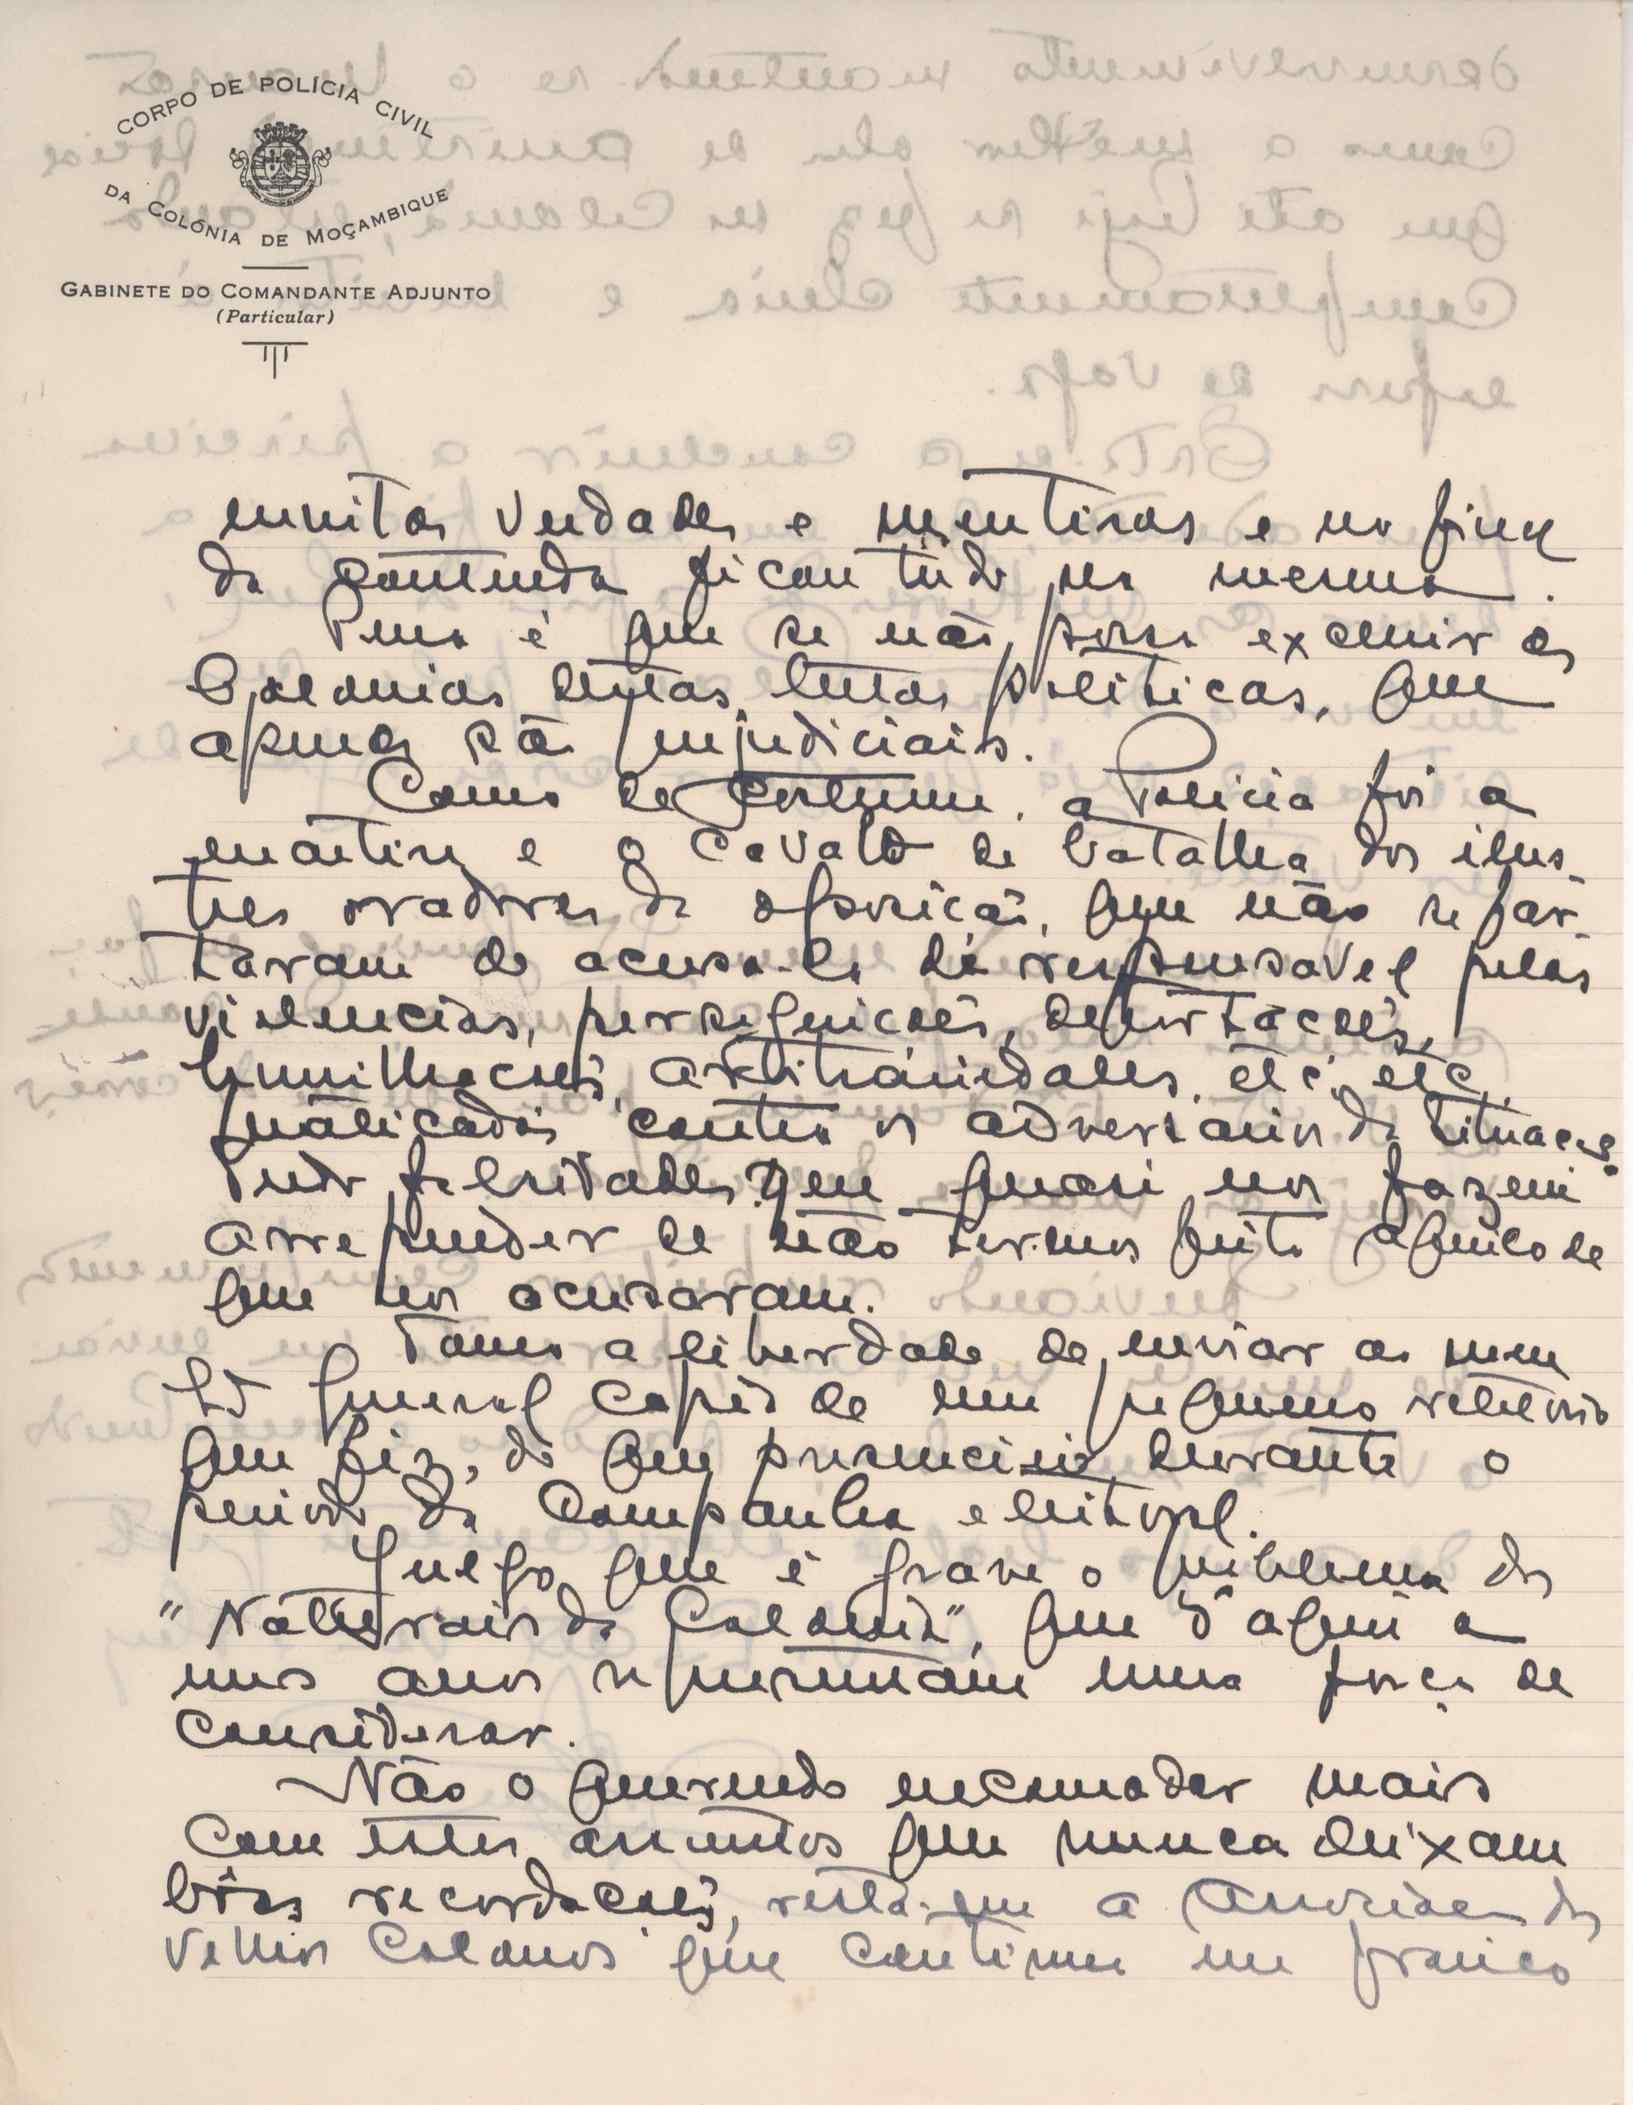 CORPO DE POLÍCIA CIVIL
DA COLÓNIA DE MOÇAMBIQUE
GABINETE DO COMANDANTE ADJUNTO
(Particular)
muitas verdades e mentiras e no final
da contenda ficou tudo na mesma.
Pena é que se não possa excluir as
Colonias destas lutas politicas, que
apenas são prejudiciais.
Como de costume, a Policia foi a
martir e o cavalo de batalha dos ilus-
tres oradores da oposição, que não se far-
taram de acusa-la de responsavel pelas
violencias, perseguições, deportações,
humilhações, arbitrariedades, etc, etc,
praticados contra os adversarios da Situação.
Tudo falsidades que quasi nos fazem
arrepender de não termos feito aquilo de
que nos acusaram.
Tomo a liberdade de enviar ao meu
General copia de um pequeno relatorio
que fiz, do que presenciei durante o
periodo da Campanha eleitoral.
Julgo que é grave o problema dos
"Naturais da Colonia", que d'aqui a
uns anos representam uma força de
considerar.
Não o querendo incomodar mais
com estes assuntos que nunca deixam
bôas recordações, resta-me a Associação dos
Velhos Colonos que continua em franco